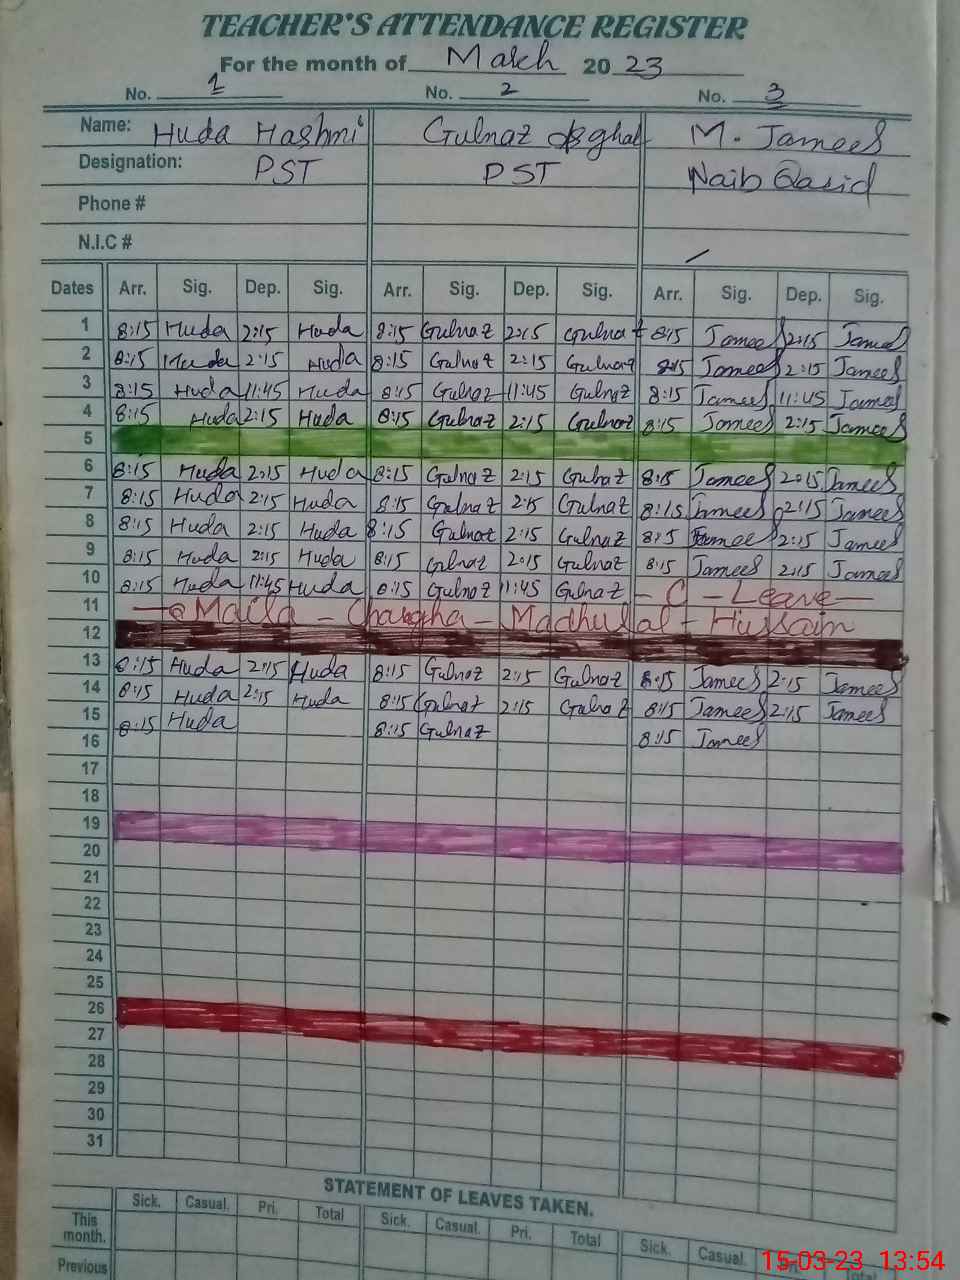 TEACHER'S ATTENDANCE REGISTER
For the month of March 2023
No. 1 No. 2 No. 3
Name: Huda Hashmi Gulnaz Asghar M. Jameel
Designation: PST PST Naib Qasid
Phone #
N.I.C #
Dates Arr. Sig. Dep. Sig. Arr. Sig. Dep. Sig. Arr. Sig. Dep. Sig.
1 8:15 Huda 2:15 Huda 8:15 Gulnaz 2:15 Gulnaz 8:15 Jameel 2:15 Jameel
2 8:15 Huda 2:15 Huda 8:15 Gulnaz 2:15 Gulnaz 8:15 Jameel 2:15 Jameel
3 8:15 Huda 11:45 Huda 8:15 Gulnaz 11:45 Gulnaz 8:15 Jameel 11:45 Jameel
4 8:15 Huda 2:15 Huda 8:15 Gulnaz 2:15 Gulnaz 8:15 Jameel 2:15 Jameel
5
6 8:15 Huda 2:15 Huda 8:15 Gulnaz 2:15 Gulnaz 8:15 Jameel 2:15 Jameel
7 8:15 Huda 2:15 Huda 8:15 Gulnaz 2:15 Gulnaz 8:15 Jameel 2:15 Jameel
8 8:15 Huda 2:15 Huda 8:15 Gulnaz 2:15 Gulnaz 8:15 Jameel 2:15 Jameel
9 8:15 Huda 2:15 Huda 8:15 Gulnaz 2:15 Gulnaz 8:15 Jameel 2:15 Jameel
10 8:15 Huda 11:45 Huda 8:15 Gulnaz 11:45 Gulnaz - C - Leave -
11 Maila - Charagha - Madhulal - Hussain
12
13 8:15 Huda 2:15 Huda 8:15 Gulnaz 2:15 Gulnaz 8:15 Jameel 2:15 Jameel
14 8:15 Huda 2:15 Huda 8:15 Gulnaz 2:15 Gulnaz 8:15 Jameel 2:15 Jameel
15 8:15 Huda 8:15 Gulnaz 8:15 Jameel
16
17
18
19
20
21
22
23
24
25
26
27
28
29
30
31
STATEMENT OF LEAVES TAKEN.
Sick. Casual. Pri. Total Sick. Casual. Pri. Total Sick. Casual.
This month.
Previous
15-03-23 13:54